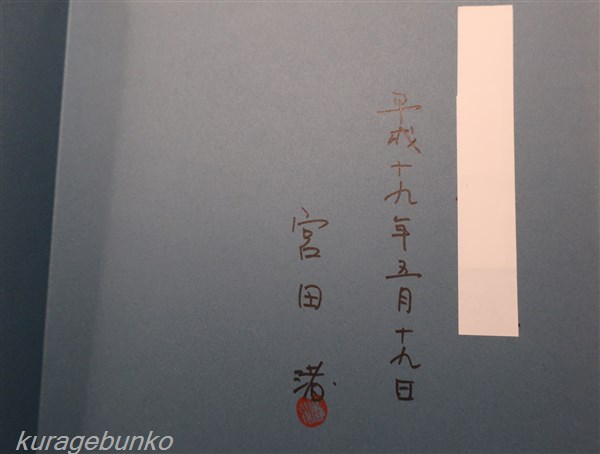 平成十九年五月十九日
宮田 渚
kuragebunko